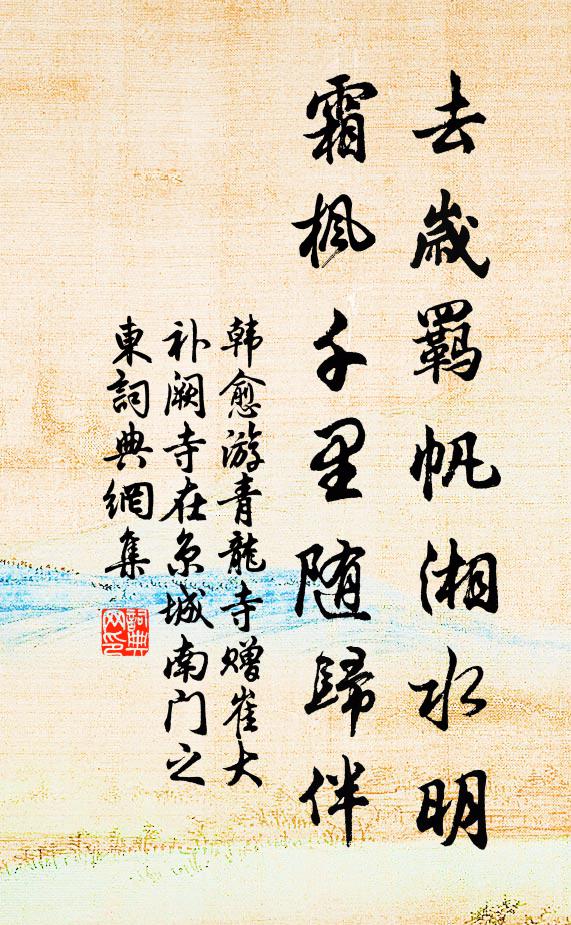 去歲羈帆湘水明
霜楓千里随歸伴
韩愈游青龍寺赠崔大
补阙寺在京城南门之
東詞典網集
詞典
网印